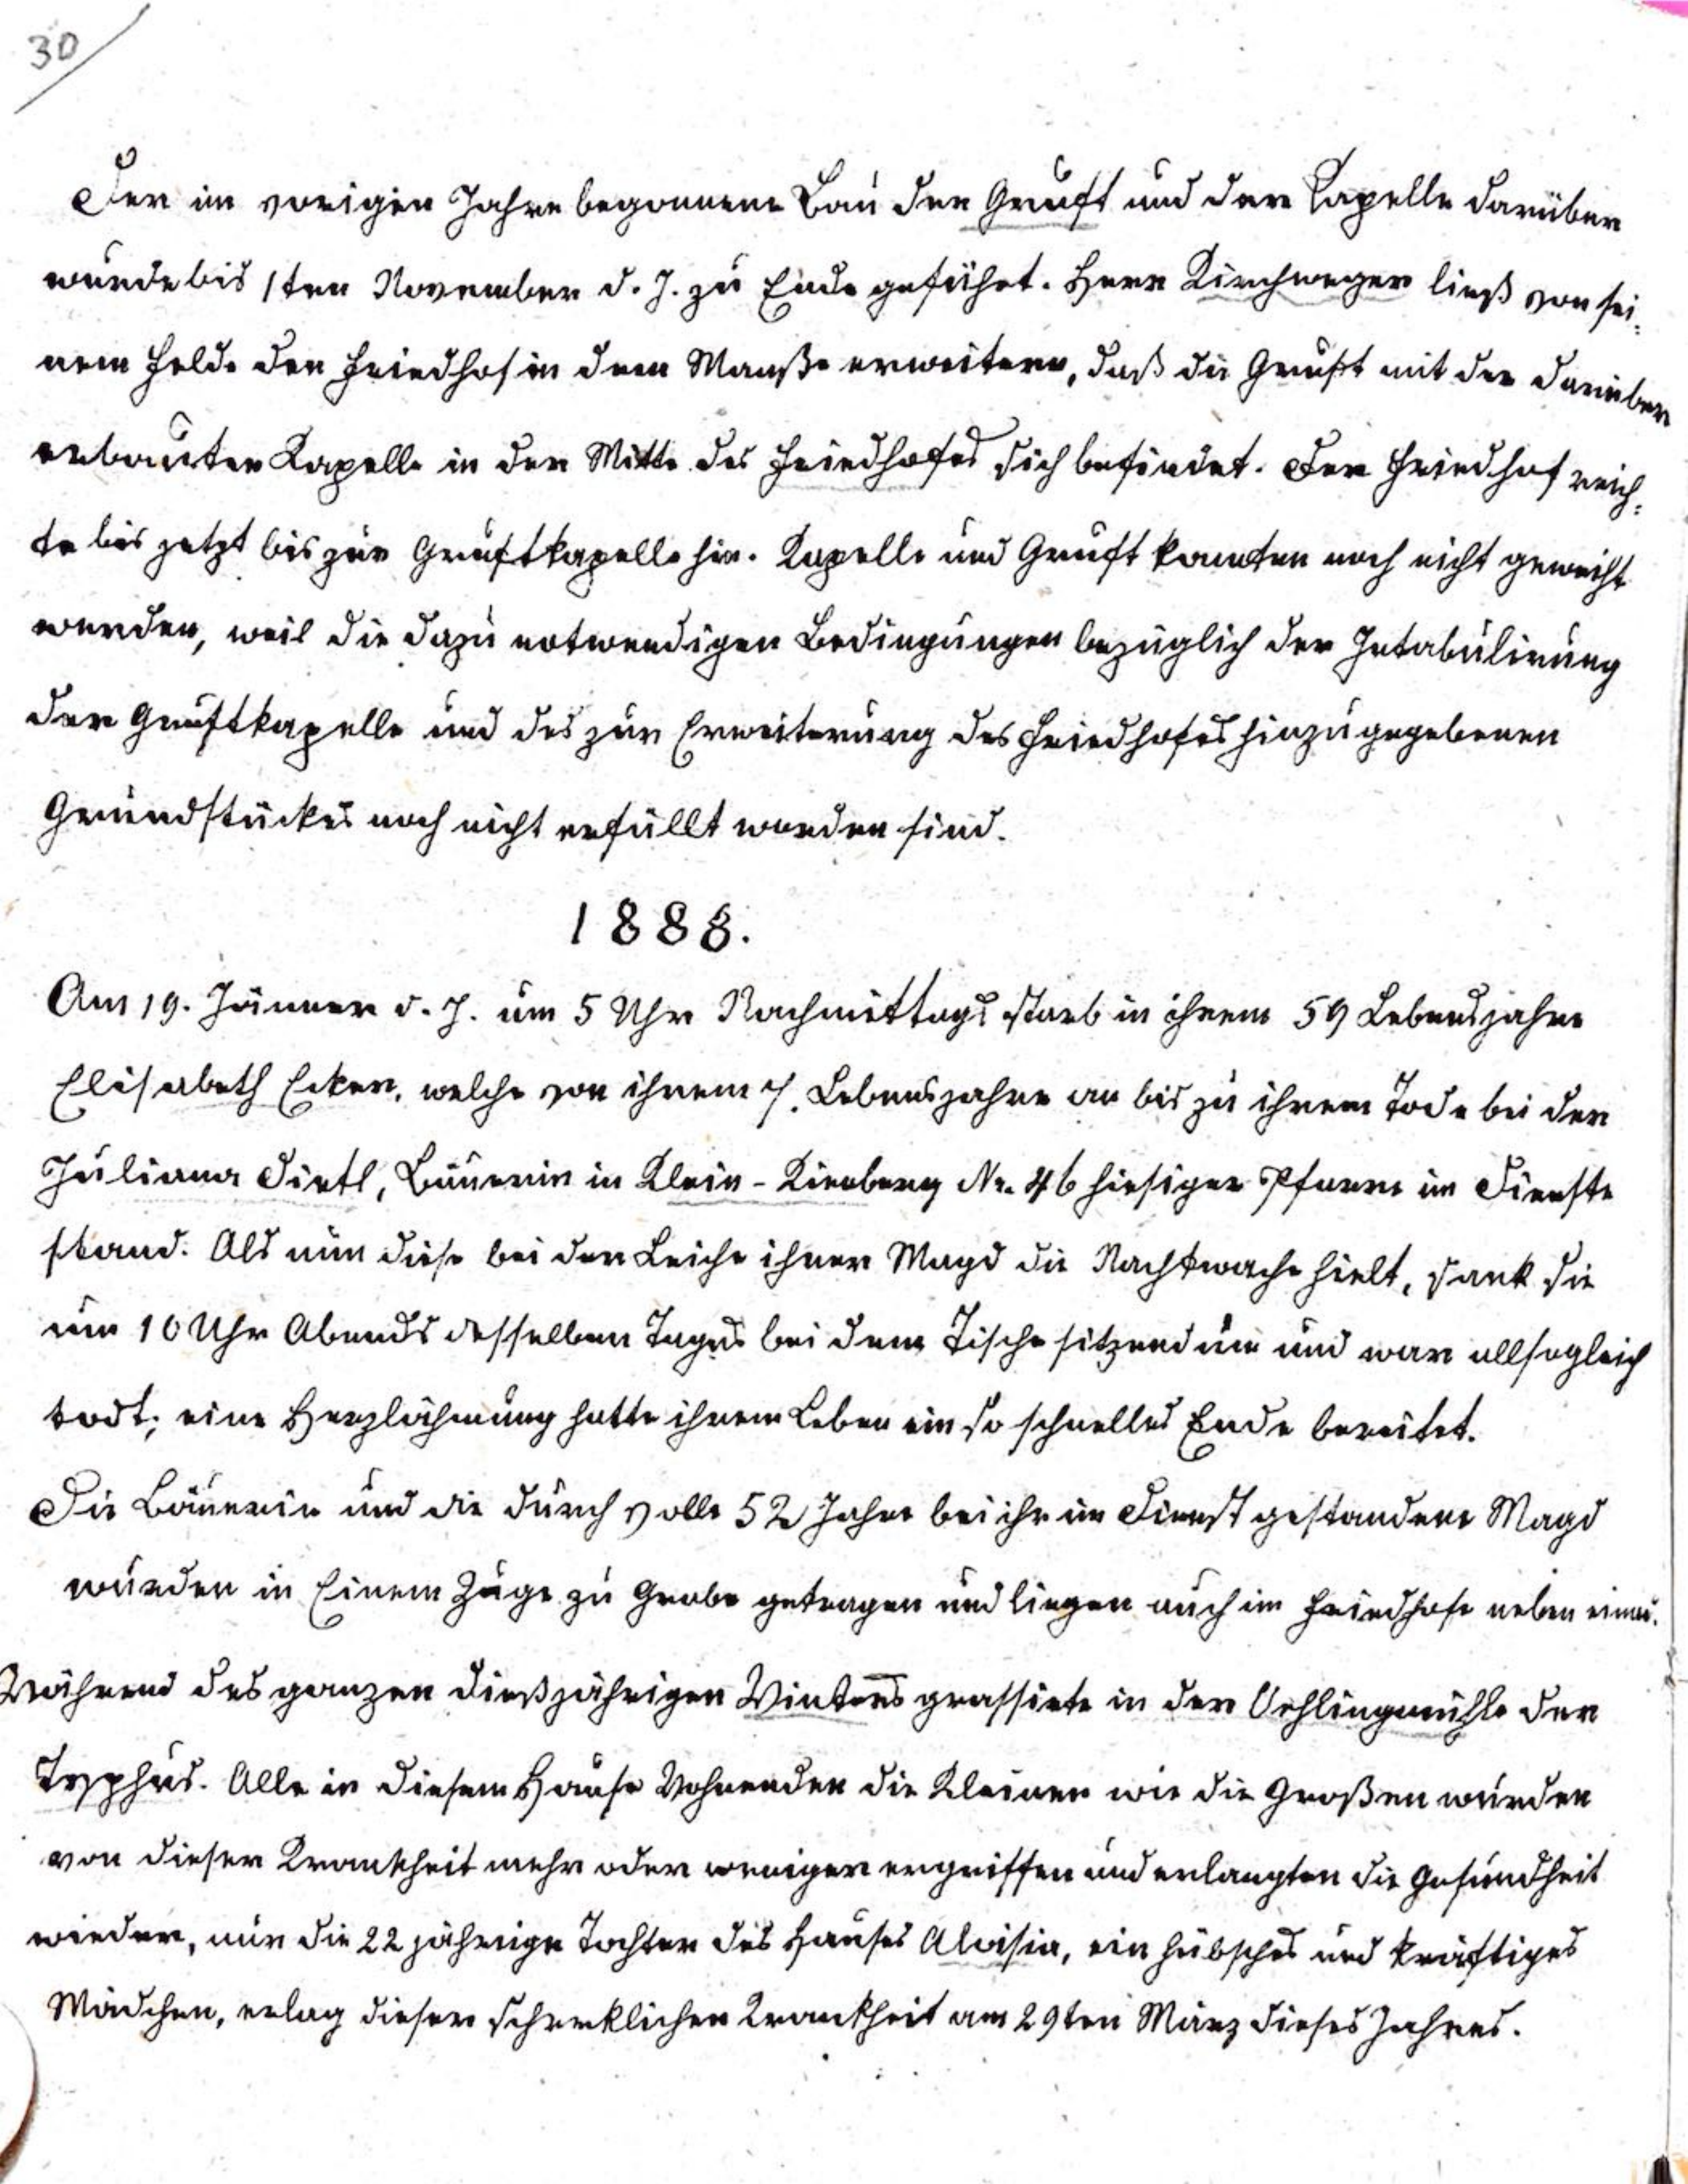 30
Der im vorigen Jahre begonnene Bau der Gruft und der Kapelle darüber
wurde bis 1ten November d. J. zu Ende geführt. Herr Kirchweger ließ von sei=
nem Felde den Friedhof in dem Maaße erweitern, daß die Gruft mit der darüber
erbauten Kapelle in der Mitte des Friedhofes sich befindet. Der Friedhof reich=
te bis jetzt bis zur Gruftkapelle hin. Kapelle und Gruft konnten noch nicht geweiht
werden, weil die dazu notwendigen Bedingungen bezüglich der Intabulirung
der Gruftkapelle und des zur Erweiterung des Friedhofes hinzugegebenen
Grundstückes noch nicht erfüllt worden sind.
1888.
Am 19. Jänner d. J. um 5 Uhr Nachmittags starb in ihrem 59 Lebensjahre
Elisabeth Ecker, welche von ihrem 7. Lebensjahre an bis zu ihrem Tode bei der
Juliana Dietl, Bäuerin in Klein-Kienberg Nr. 46 hiesiger Pfarre im Dienste
stand. Als nun diese bei der Leiche ihrer Magd die Nachtwache hielt, sank sie
um 10 Uhr Abends desselben Tages bei dem Tische sitzend um und war allsogleich
todt; eine Herzlähmung hatte ihrem Leben ein so schnelles Ende bereitet.
Die Bäuerin und die durch volle 52 Jahre bei ihr im Dienst gestandene Magd
wurden in Einem Zuge zu Grabe getragen und liegen auch im Friedhofe neben einan.
Während des ganzen dießjährigen Winters grassirte in der Oehlingmühle der
Typhus. Alle in diesem Hause Wohnenden die Kleinen wie die Großen wurden
von dieser Krankheit mehr oder weniger ergriffen und erlangten die Gesundheit
wieder, nur die 22 jährige Tochter des Hauses Aloisia, ein hübsches und kräftiges
Mädchen, erlag dieser schreklichen Krankheit am 29ten März dieses Jahres.